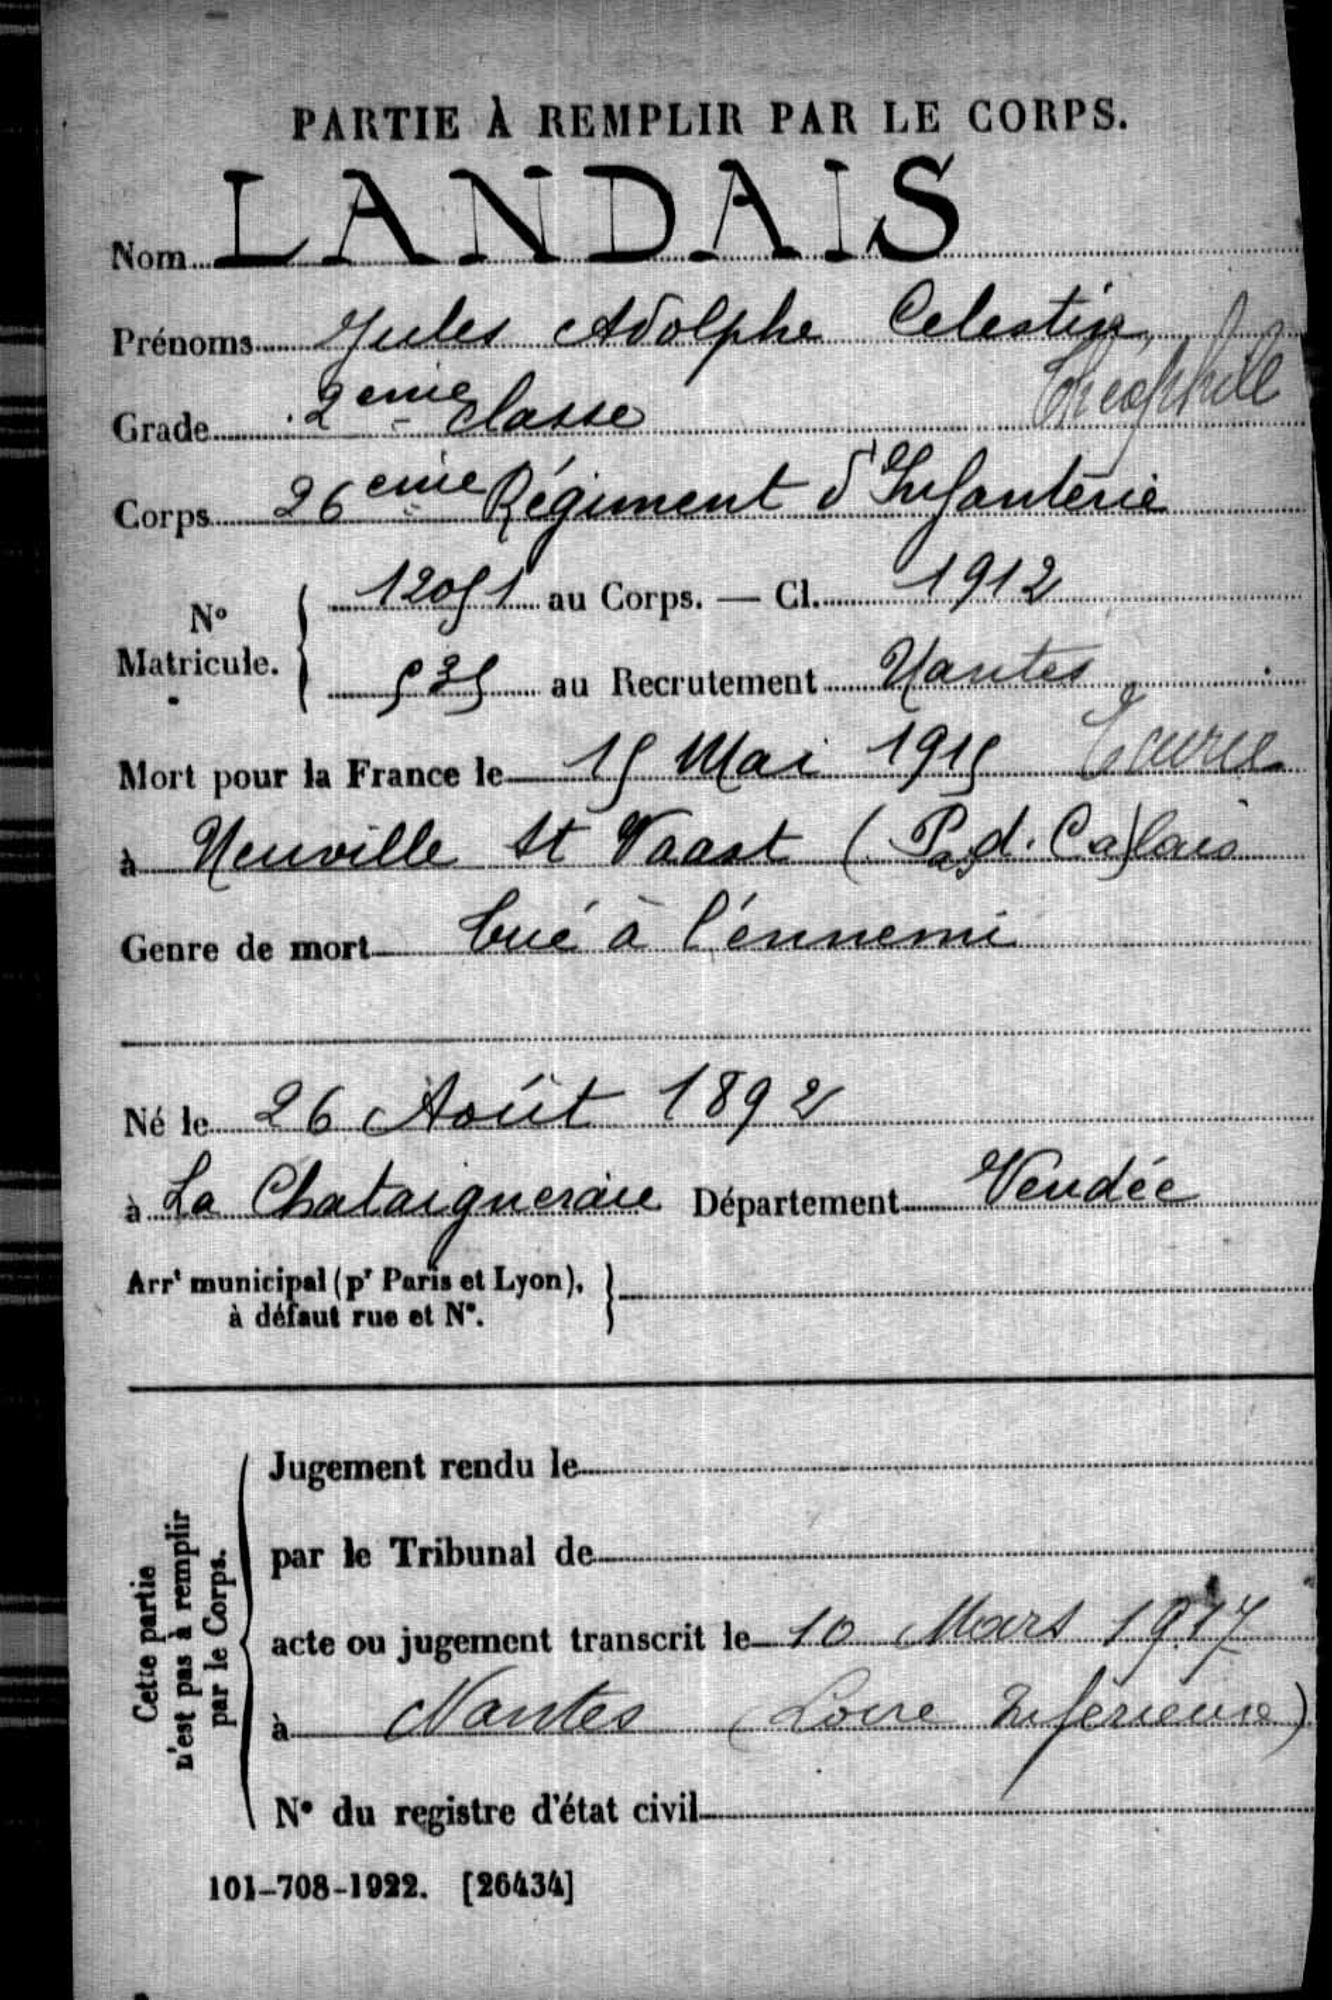 PARTIE À REMPLIR PAR LE CORPS.
Nom LANDAIS
Prénoms Jules Adolphe Celestin
Théophile
Grade 2eme classe
Corps 26eme Régiment d'Infanterie
N° Matricule. { 12051 au Corps. — Cl. 1912
535 au Recrutement Nantes
Mort pour la France le 15 Mai 1915 Ecurie
à Neuville St Vaast (Pas d. Ca)lais
Genre de mort tué à l'énnemi
Né le 26 Août 1892
à La Chataigneraie Département Vendée
Arrt municipal (pr Paris et Lyon), }
à défaut rue et N°.
Cette partie
n'est pas à remplir
par le Corps.
Jugement rendu le
par le Tribunal de
acte ou jugement transcrit le 10 Mars 1917
à Nantes (Loire Inférieure)
N° du registre d'état civil
101-708-1922. [26434]